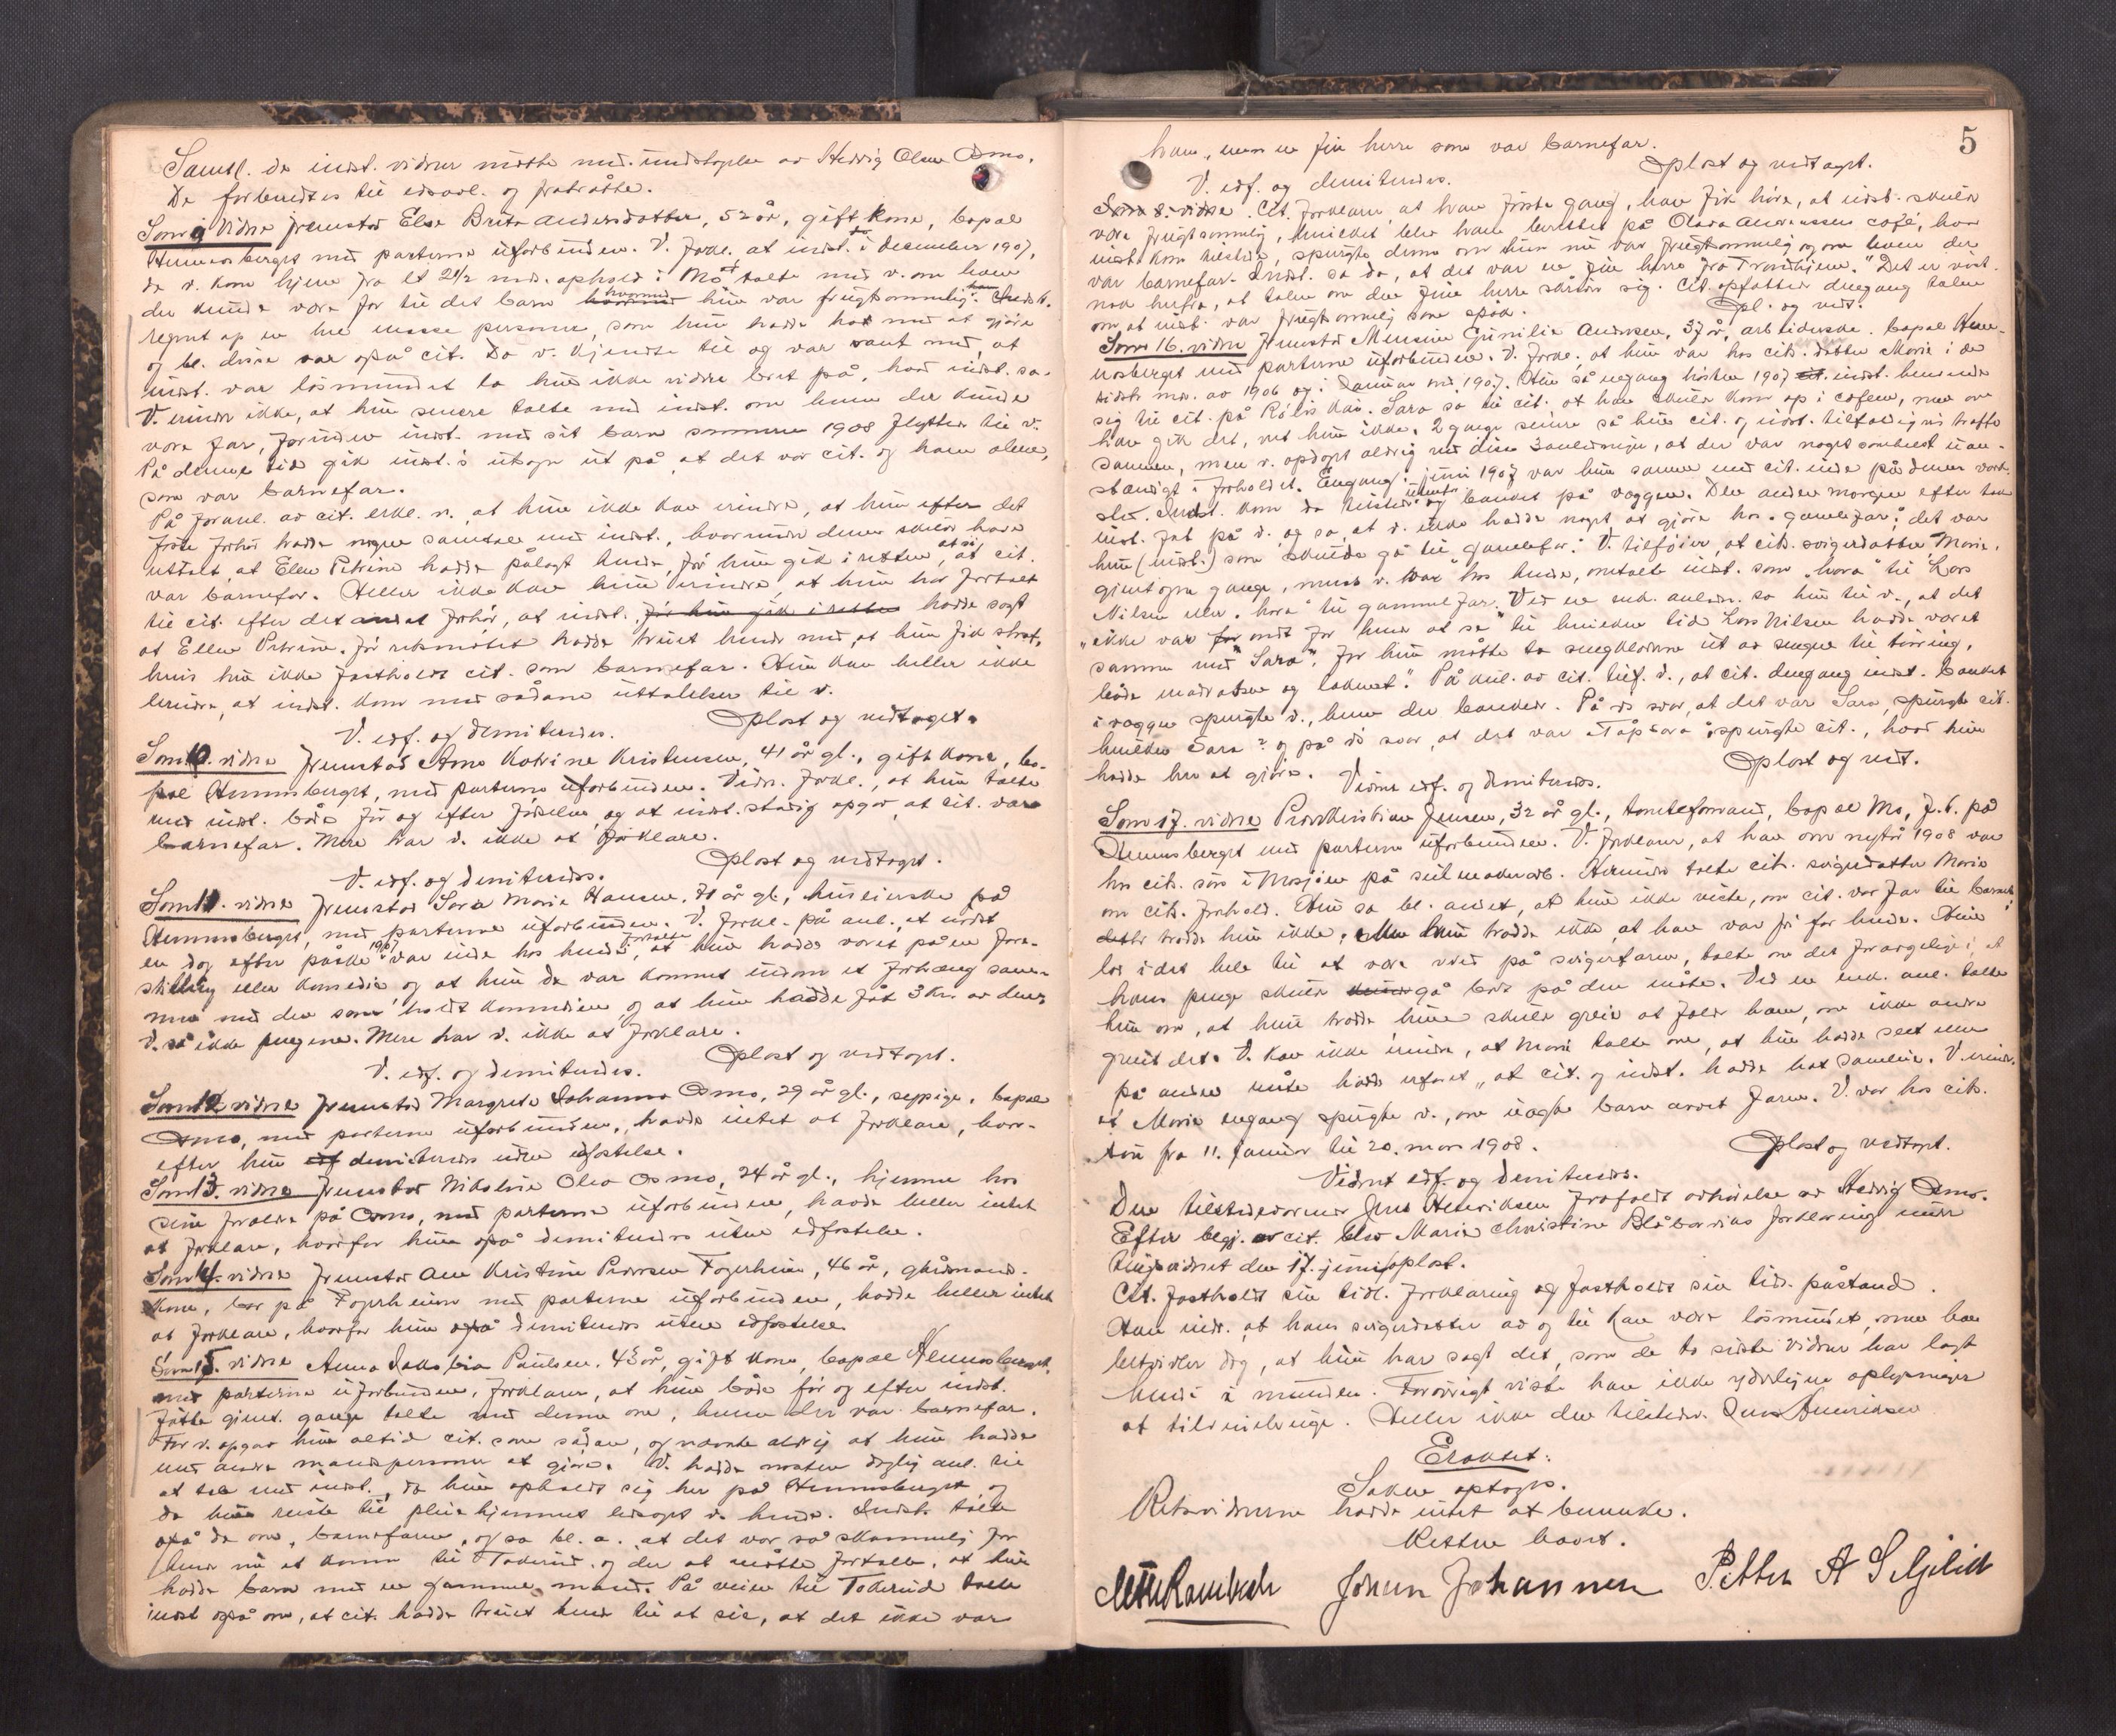 Samtl. de indst. vidner mødte med undtagelse av Hedvig Olsen Osmo.
De forberedtes til edsavl. og fratrådte.
Som 9 vidne fremstod Else Brita Andersdatter, 52 år, gift kone, bopæl
Hemnesberget med parterne uforbunden. V. forkl. at indst. i december 1907,
da v. kom hjem fra et 2 1/2 mds. ophold i Mo talte med v. om hvem
der kunde være far til det barn hvormed hun var frugtsommelig. Indst.
regnet op en hel masse personer, som hun hadde hat med at gjøre
og bl. disse var også cit. Da v. kjendte til og var vant med, at
indst. var løsmundet la hun ikke videre bret på, hvad indst. sa.
V. erindr. ikke, at hun senere talte med indst. om hvem der kunde
være far, forinden indst. med sit barn sommeren 1908 flyttet til v.
På denne tid gik indst.s utsagn ut på, at det var cit. og ham alene,
som var barnefar.
På foranl. av cit. erkl. v. at hun ikke kan erindre, at hun efter det
første forhør hadde nogen samtale med indst., hvorunder denne skulde have
uttalt, at Ellen Petrine hadde pålagt hende, før hun gik i retten, at si, at cit.
var barnefar. Heller ikke kan hun erindre, at hun har fortalt
til cit. efter det andet forhør, at indst. før hun gik i retten hadde sagt
at Ellen Petrine før retsmøtet hadde truet hende med, at hun fik straf,
hvis hun ikke fastholdt cit. som barnefar. Hun kan heller ikke
erindre, at indst. kom med sådane uttalelser til v.
Oplæst og vedtaget.
V. edf. og demitteredes.
Som 10. vidne fremstod Ane Katrine Kristensen, 41 år gl., gift kone, bo-
pæl Hemnesberget, med parterne uforbunden. Vidn. forkl., at hun talte
med indst. både før og efter fødselen, og at indst. stadig opgav, at cit. var
barnefar. Mere har v. ikke at forklare.
Oplæst og vedtaget.
V. edf. og demitteredes.
Som 11. vidne fremstod Sara Marie Hansen, 71 år gl., huseierske på
Hemnesberget, med parterne uforbunden. V. forkl. på anl., at indst
en dag efter påske 1907 var inde hos hende, fortalte at hun hadde været på en fore-
stilling eller komedie, og at hun da var kommet indom et forhæng sam-
men med den som holdt komedien og at hun hadde fåt 3 kr. av denne
V. så ikke pengene. Mere har v. ikke at forklare.
Oplæst og vedtaget.
V. edf. og demitteredes.
Som 12 vidne fremstod Margrete Johanna Osmo, 29 år gl., sypige, bopæl
Osmo, med parterne uforbunden, havde intet at forklare, hvor-
efter hun edf demitteredes uden edfæstelse.
Som 13. vidne fremstod Nikoline Olea Osmo, 24 år gl., hjemme hos
sine forældre på Osmo, med parterne uforbunden, havde heller intet
at forklare, hvorfor hun også demitteredes uten edfæstelse.
Som 14. vidne fremstod Ane Kristine Pedersen Fagerheim, 46 år, gårdmands-
kone, bor på Fagerheim med parterne uforbunden, hadde heller intet
at forklare, hvorfor hun også demitteredes uten edfæstelse
Som 15. vidne Anna Jakobia Paulsen, 43 år, gift kone, bopæl Hemnesberget,
med parterne uforbunden, forklarer, at hun både før og efter indst.
fødte gjent. gange talte med denne om, hvem der var barnefar.
For v. opgav hun altid cit. som sådan, og nævnte aldrig at hun hadde
med andre mandspersoner at gjøre. V. hadde næsten daglig anl. til
at tale med indst., da hun opholdt sig her på Hemnesberget, og
da hun reiste til pleiehjemmet ledsaget v. hende. Indst. talte
også da om, barnefaren, og sa bl. a. at det var så skammelig for
hende nu at komme til Toderud og der at måtte fortælle, at hun
hadde barn med en gammel mand. På veien til Toderud talte
indst også om, at cit. hadde truet hende til at sie, at det ikke var
5
ham, men en fin herre som var barnefar.
Oplæst og vedtaget.
V. edf. og demitteredes.
Som 8. vidne. Cit. forklarer, at hvor første gang, han fik høre, at indst. skulde
være frugtsommelig, hvilket blev ham berettet på Olava Andreassens café, hvor
indst. kom tilstede, spurgte denne om hun nu var frugtsommelig og om hvem der
var barnefar. Indst. sa da, at det var en fin herre fra Trondhjem." Det er vist-
nok herfra, at talen om den fine herre skriver sig. Cit. opfattet dengang talen
om at indst. var frugtsommelig som spøk.
Opl. og vedt.
Som 16. vidne fremstod Mensine Gunilie Andersen, 37 år, arbeiderske, bopæl Hem-
nesberget med parterne uforbunden. V. forkl., at hun var hos cits. datter Marie i de
sidste mdr. av 1906 og i Januar md. 1907. Hun så engang høsten 1907 cit. indst. henvende
sig til cit. på kai. Sara sa til cit. at han skulde komme op i cafeen, men om
han gik det, vet hun ikke. 2 gange senere så hun cit. og indst. tilfældigvis træffe
sammen, men v. opdaget aldrig ved disse 3 anledninger, at der var noget somhelst uan-
stændigt i forholdet. Engang i juni 1907 var hun sammen med cit. inde på denes værk-
sted. Indst. kom da tilstede utenfor og banket på væggen. Den anden morgen efter tok
indst. fat på v. og sa, at v. ikke hadde noget at gjøre hos gamlefar; det var
hun (indst.) som skulde gå til gamlefar." V. tilføier, at cits. svigerdatter Marie,
gjentagne gange, mens v. var hos hende, omtalte indst. som „hora" til Lars
Nilsen eller „hora" til gammelfar. Ved en enk. anledn. sa hun til v., at det
„ikke var for ondt for hende at se" til hvilken tid Lars Nilsen hadde været
sammen med "Sara", for hun måtte ta sengklærne ut av sengen til tørring,
både madratsen og laknet." På anl. av cit. tilf. v., at cit. dengang indst. banket
i væggen spurgte v., hvem der bankede. På vs svar, at det var Sara, spurgte cit.
hvilken Sara? og på vs svar, at det var Tåpsara spurgte cit., hvad hun
hadde her at gjøre.
Oplæst og vedt.
Vidnet edf. og demitteredes.
Som 17. vidne Peder Kristian Jensen, 32 år gl., tomteformand, bopæl Mo, f. t. på
Hemnesberget med parterne uforbunden. V. forklarer, at han om nytår 1908 var
hos cits. søn i Mosjøen på seilmakerarb. Herunder talte cits. svigerdatter Marie
om cits. forhold. Hun sa bl. andet, at hun ikke visste, om cit. var far til barnet;
dette trodde hun ikke, men hun trodde ikke, at han var fri for hende. Hun
lot i det hele til at være vred på svigerfaren, talte om det forargelige i, at
hans penge skulde gå bort på den måte. Ved en enk. anl. talte
hun om, at hun trodde hun skulde greie at fælde ham, om ikke andre
greiet det. V. kan ikke erindre, at Marie talte om, at hun hadde seet eller
på anden måte hadde erfaret „at cit. og indst. hadde hat samleie. V. erindr.
at Marie engang spurgte v., om uægte barn arvet faren. V. var hos cits.
søn fra 11. januar til 20. mars 1908.
Oplæst og vedtaget.
Vidnet edf. og demitteredes.
Den tilstedeværende Jens Henriksen frafaldt avhørelse av Hedvig Osmo.
Efter begj. av cit. blev Marie Christine Blåbærvikas forklaring under
tingsvidnet den 17. juni oplæst.
Cit. fastholdt sin tidl. forklaring og fastholdt sin tidl. påstand.
Han indr. at hans svigerdatter av og til kan være løsmundet, men han
betvivler dog, at hun har sagt det, som de to sidste vidner har lagt
hende i munden. Forøvrigt visste han ikke yderligere oplysninger
at tilveiebringe. Heller ikke den tilstedev. Jens Henriksen
Eraktet:
Saken optages.
Retsvidnerne hadde intet at bemerke.
Retten hævet.
Johan Johannesen Petter A Seljelid